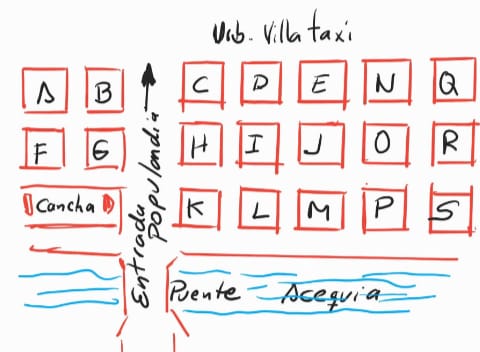 Urb. Villa taxi
A B C D E N Q
F G H I J O R
Cancha K L M P S
Entrada
Populandia
Puente Acequia